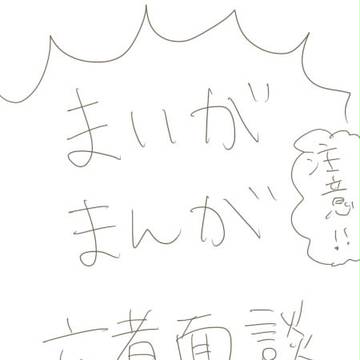 まいが
まんが
注意!!
六者面談